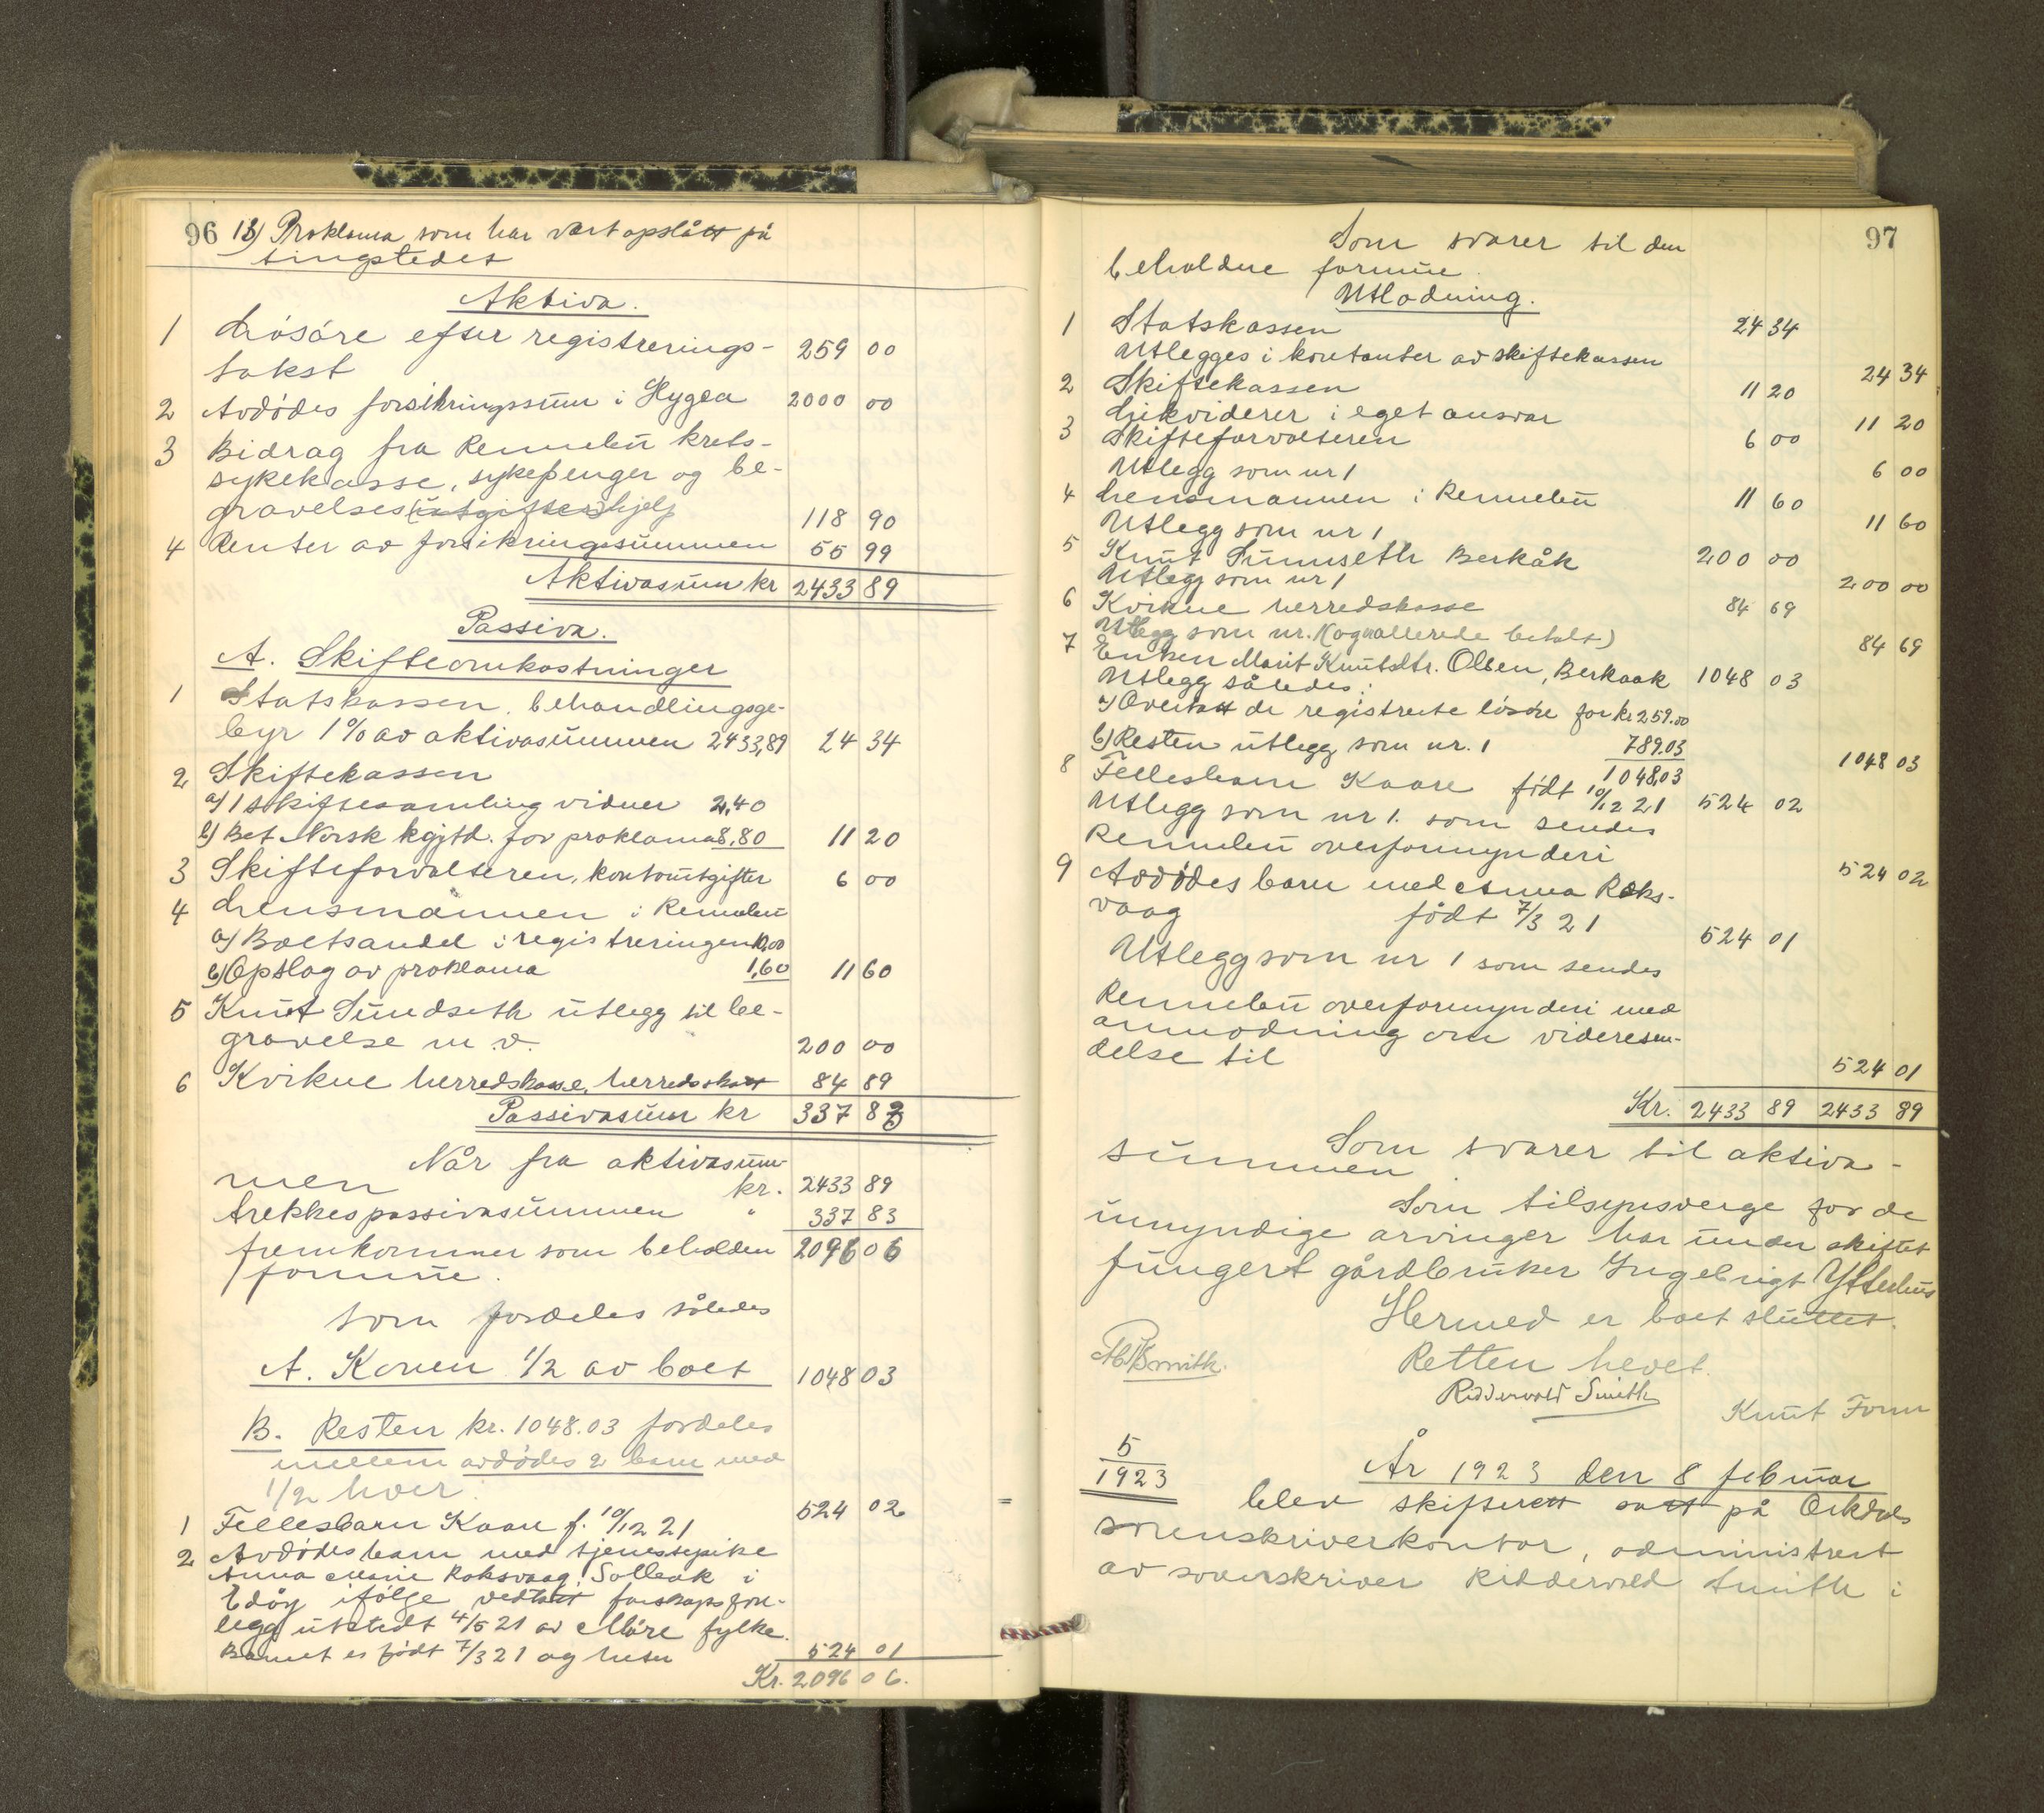 96 13) Proklama som har vært opslått på
tingstedet
Aktiva.
1 Løsøre efter registrerings-
takst 259 00
2 Avdødes forsikringssum i Hygea 2000 00
3 Bidrag fra Rennebu krets-
sykekasse, sykepenger og be-
gravelses(utgifter)hjelp 118 90
4 Renter av forsikringssummen 55 99
Aktivasum kr 2433 89
Passiva.
A. Skifteomkostninger
1 Statskassen, behandlingsge-
byr 1% av aktivasummen 2433,89 24 34
2 Skiftekassen
a) 1 skiftesamling vidner 2,40
b) Bet Norsk kgjtd. for proklama 8,80 11 20
3 Skifteforvalteren, kontorutgifter 6 00
4 Lensmannen i Rennebu
a) Boetsandel i registreringen 10,00
b) Opslag av proklama 1,60 11 60
5 Knut Sundseth utlegg til be-
gravelse m.v. 200 00
6 Kvikne herredskasse, herredsskatt 84 89
Passivasum kr 337 83
Når fra aktivasum-
men kr. 2433 89
trekkes passivasummen " 337 83
fremkommer som beholden 2096 06
formue.
som fordeles således
A. Konen 1/2 av boet 1048 03
B. Resten kr. 1048.03 fordeles
mellem avdødes 2 barn med
1/2 hver:
1 Fellesbarn Kaare f. 10/12 21 524 02
2 Avdødes barn med tjenestepike
Anna Marie Roksvaag, Solleak i
Edøy ifølge vedtatt farskapsfore-
legg utstedt 4/5 21 av Møre fylke.
Barnet er født 7/3 21 og heter 524 01
Kr. 2096 06.
97
Som svarer til den
beholdne formue.
Utlodning.
1 Statskassen 24 34
Utlegges i kontanter av skiftekassen 24 34
2 Skiftekassen 11 20
Likviderer i eget ansvar 11 20
3 Skifteforvalteren 6 00
Utlegg som nr 1 6 00
4 Lensmannen i Rennebu 11 60
Utlegg som nr 1 11 60
5 Knut Sunnseth Berkåk 200 00
Utlegg som nr 1 200 00
6 Kvikne herredskasse 84 69
Utlegg som nr. 1 (og allerede betalt) 84 69
7 Enken Marit Knutsdtr. Olsen, Berkaak 1048 03
Utlegg således:
a) Overtatt de registrerte løsøre for kr 259.00
b) Resten utlegg som nr. 1 789.03
1048,03 1048 03
8 Fellesbarn Kaare født 10/12 21 524 02
Utlegg som nr 1. som sendes
Rennebu overformynderi 524 02
9 Avdødes barn med Anna Roks-
vaag født 7/3 21 524 01
Utlegg som nr 1 som sendes
Rennebu overformynderi med
anmodning om videresen-
delse til 524 01
Kr. 2433 89 2433 89
Som svarer til aktiva-
summen
Som tilsynsverge for de
umyndige arvinger har under skiftet
fungert gårdbruker Ingebrigt Ytterhus
Hermed er boet sluttet.
Retten hevet.
Ridderwold Smith
Knut Form
5
1923
År 1923 den 8 februar
blev skifterett satt på Orkdals
sorenskriverkontor, administrert
av sorenskriver Ridderwold Smith i